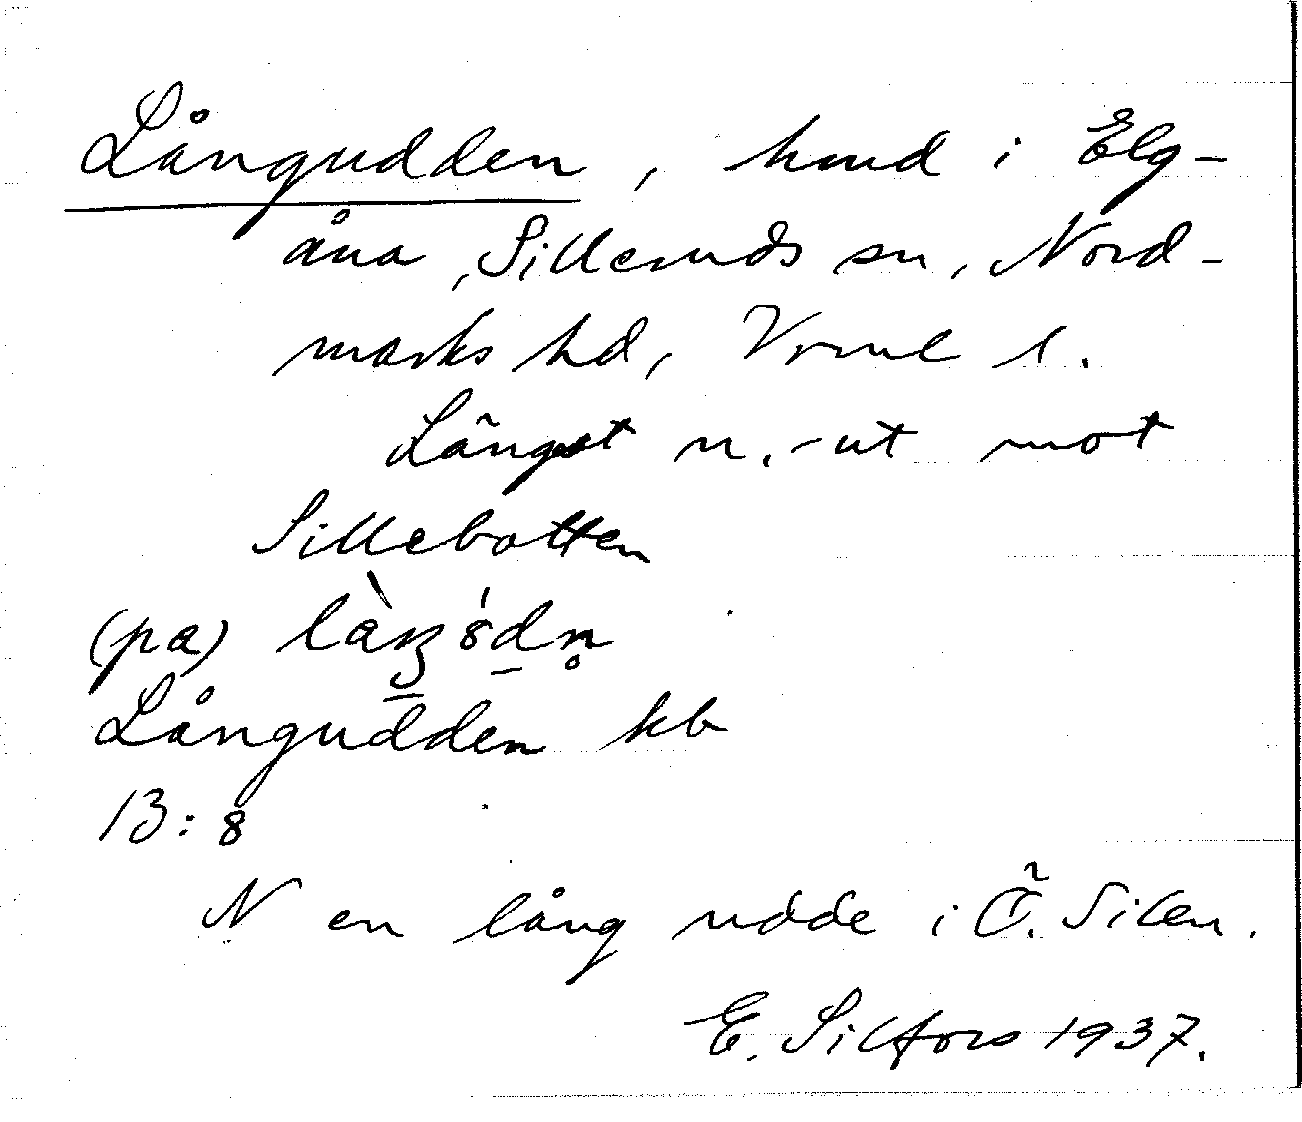 Långudden, hmd i Elg-
åna, Silleruds sn, Nord-
marks hd, Vrml l.
Längst n.-ut mot
Sillebotten
(pa)
Långudden kb
13:8
N en lång udde i Ö. Silen.
E. Silfors 1937.